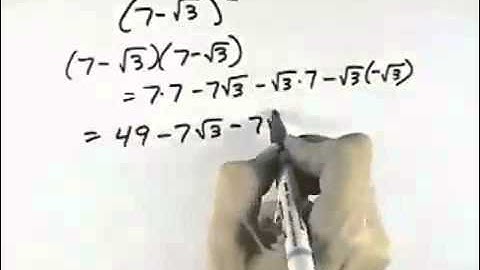 (7-√3)
(7-√3)(7-√3)
= 7·7 - 7√3 - √3·7 - √3(-√3)
= 49 - 7√3 - 7√